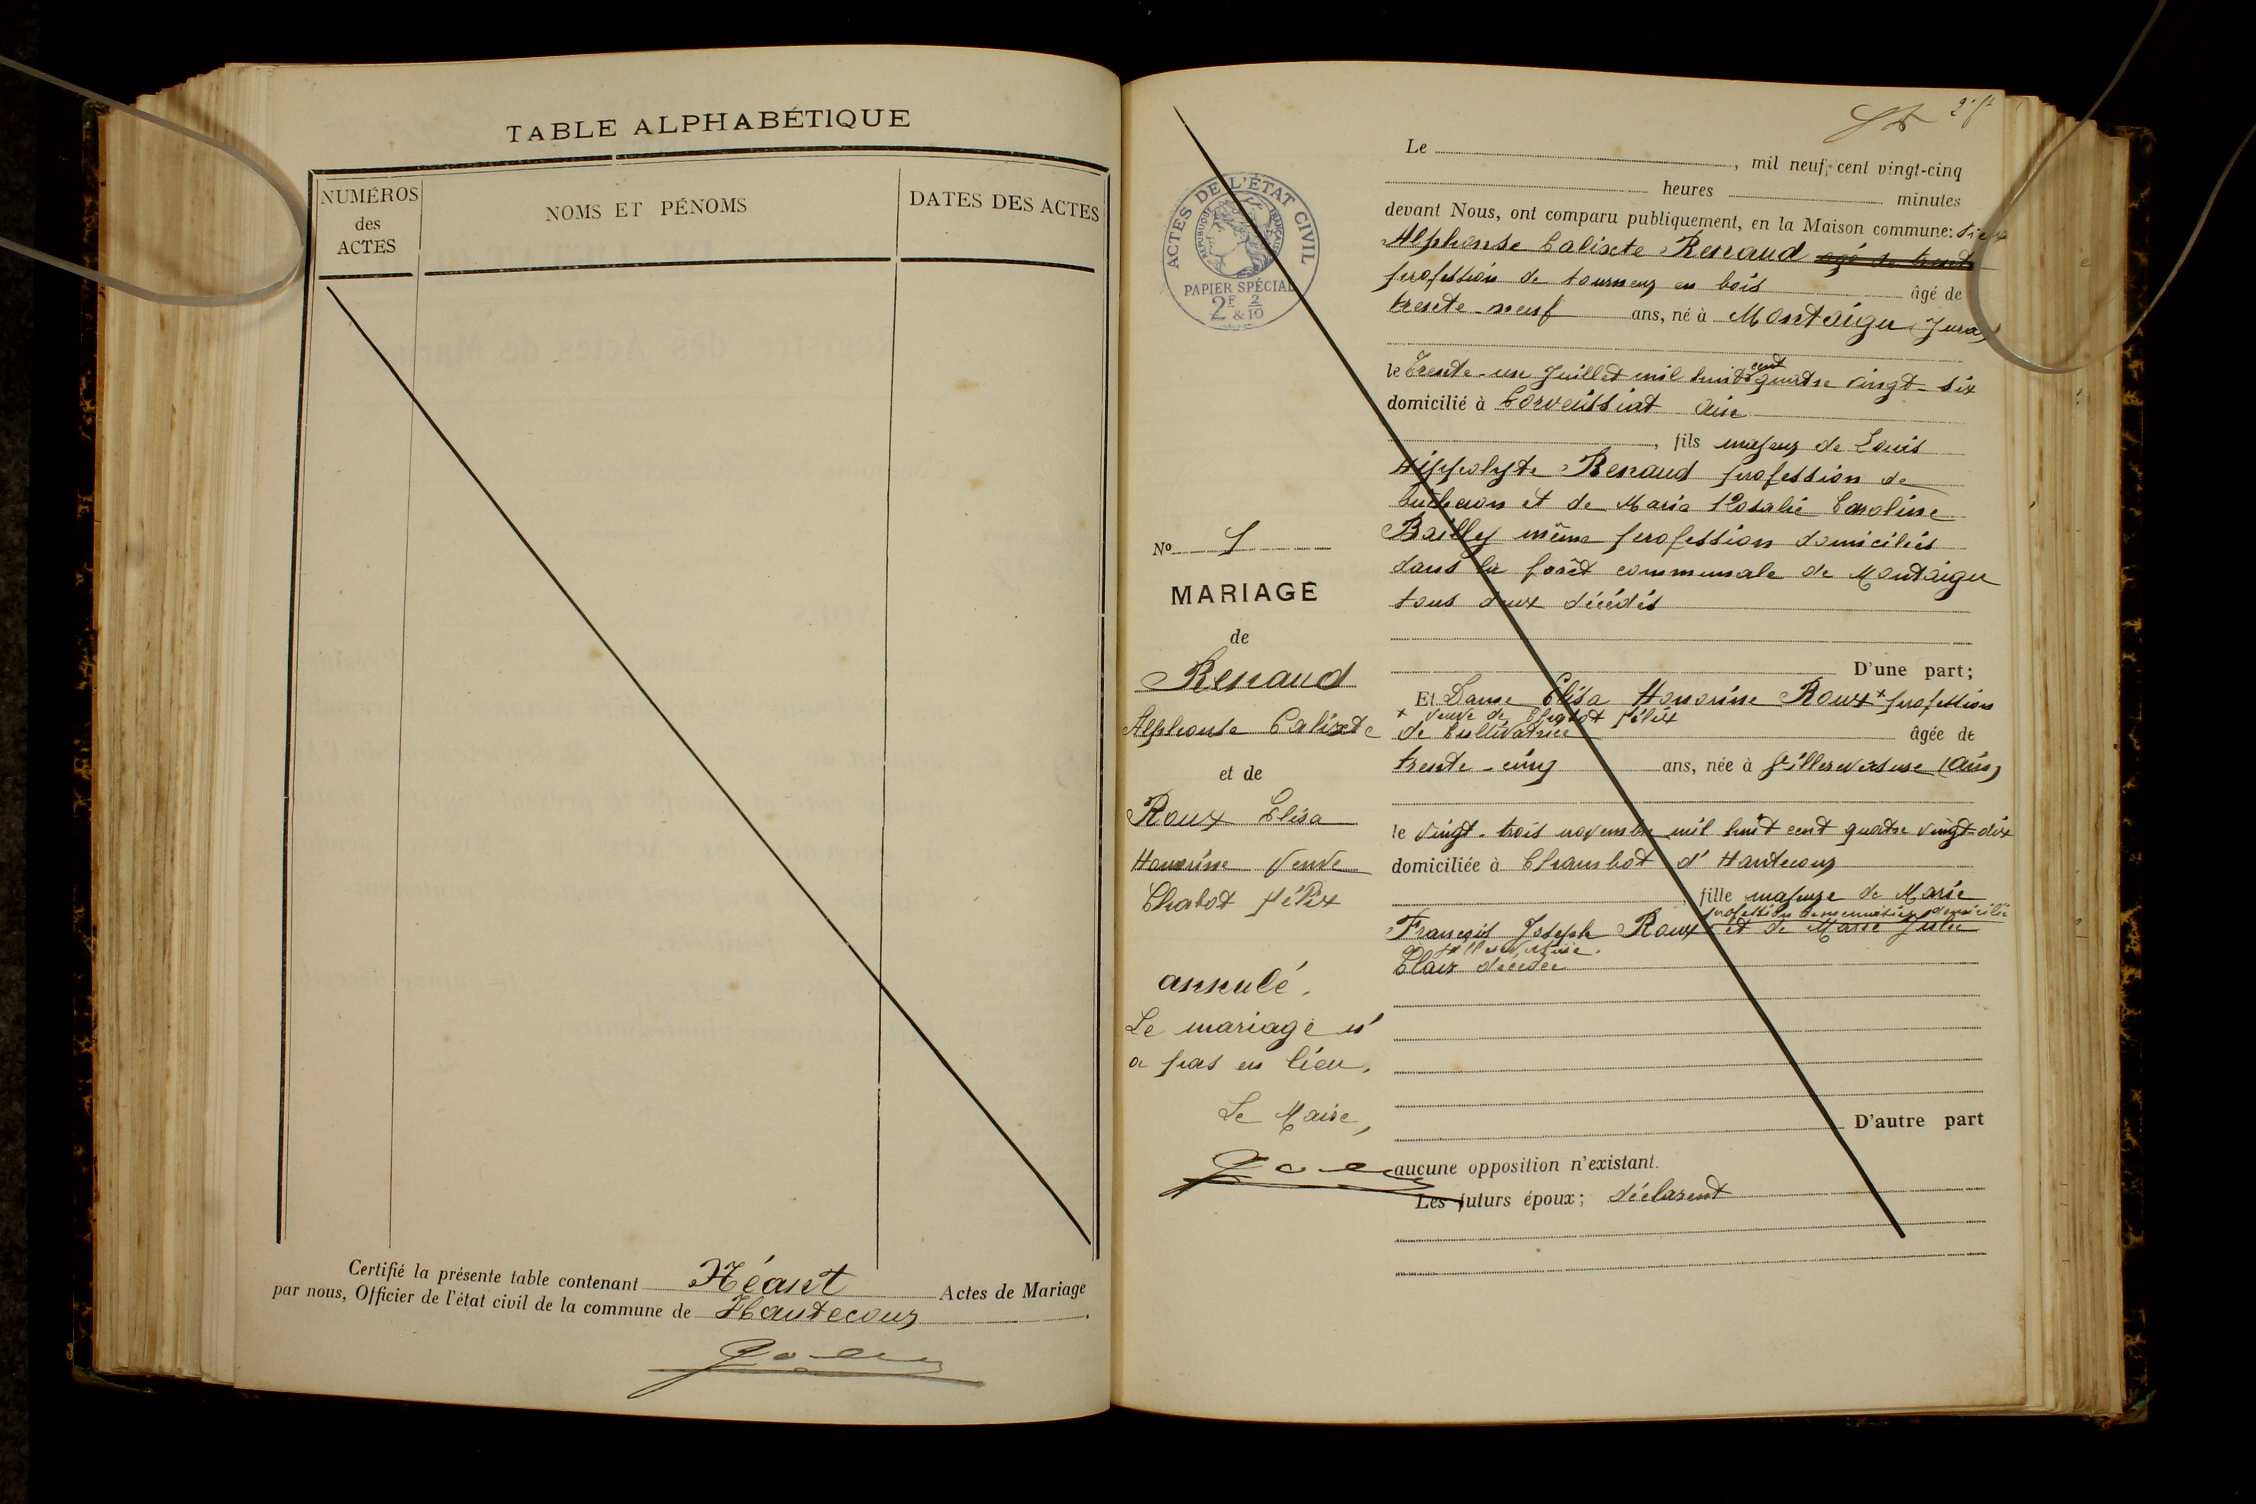 TABLE ALPHABÉTIQUE
NUMÉROS
des
ACTES
NOMS ET PÉNOMS
DATES DES ACTES
Certifié la présente table contenant Néant Actes de Mariage
par nous, Officier de l'état civil de la commune de Hautecour
Le , mil neuf cent vingt-cinq
heures minutes
devant Nous, ont comparu publiquement, en la Maison commune: Sieur
Alphonse Calixte Renaud âgé de trente
profession de tourneur en bois âgé de
trente-neuf ans, né à Montaigu (Jura)
le Trente-un Juillet mil huit cent quatre vingt-six
domicilié à Corveissiat Ain
, fils majeur de Louis
Hippolyte Renaud profession de
bucheron et de Maria Rosalie Caroline
Bailly même profession domiciliés
dans la forêt communale de Montaigu
tous deux décédés
D'une part;
Et Dame Elisa Honorine Roux + profession
+ veuve de Chabot Félix
de Cultivatrice âgée de
trente-cinq ans, née à Villereversure (Ain)
le vingt-trois novembre mil huit cent quatre vingt-dix
domiciliée à Chambod d'Hautecour
, fille majeure de Marie
profession domicilié
François Joseph Roux et de Marie Julie
à Villereversure.
Claix décédée
D'autre part
aucune opposition n'existant.
Les futurs époux; déclarent
ACTES DE L'ÉTAT CIVIL
RÉPUBLIQUE FRANÇAISE
PAPIER SPÉCIAL
2F & 2/10
No 1
MARIAGE
de
Renaud
Alphonse Calixte
et de
Roux Elisa
Honorine Veuve
Chabot Félix
annulé.
Le mariage n'
a pas eu lieu.
Le Maire,